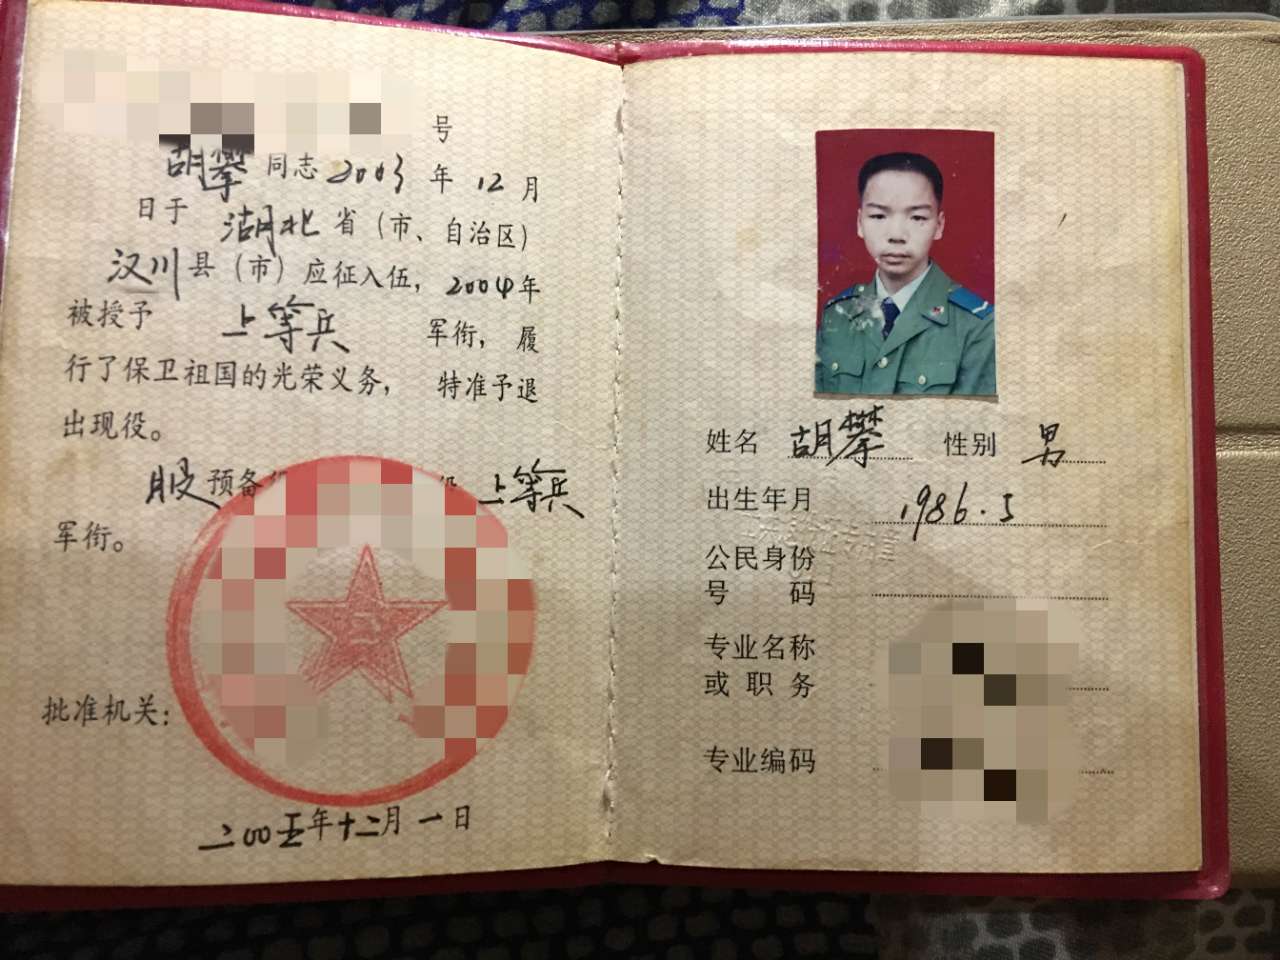 号
胡攀 同志 2003 年 12 月
日于 湖北 省（市、自治区）
汉川 县（市）应征入伍，2004年
被授予 上等兵 军衔，履
行了保卫祖国的光荣义务，特准予退
出现役。
服 预备 役 上等兵
军衔。
批准机关：
二〇〇五年十二月一日
姓名 胡攀 性别 男
出生年月 1986.5
公民身份
号 码
专业名称
或 职 务
专业编码